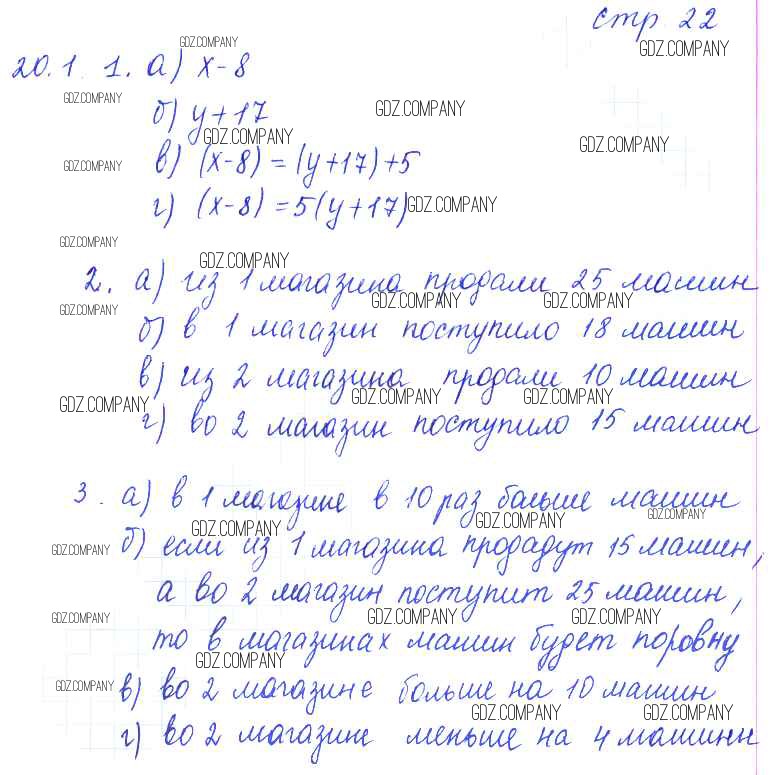 стр 22
GDZ.COMPANY
GDZ.COMPANY
20.1. 1. а) x-8
GDZ.COMPANY GDZ.COMPANY
б) y+17
GDZ.COMPANY GDZ.COMPANY
GDZ.COMPANY в) (x-8) = (y+17)+5
г) (x-8) = 5(y+17) GDZ.COMPANY
GDZ.COMPANY
GDZ.COMPANY
2. а) из 1 магазина продали 25 машин
GDZ.COMPANY GDZ.COMPANY GDZ.COMPANY
б) в 1 магазин поступило 18 машин
в) из 2 магазина продали 10 машин
GDZ.COMPANY GDZ.COMPANY GDZ.COMPANY
г) во 2 магазин поступило 15 машин
3. а) в 1 магазине в 10 раз больше машин
GDZ.COMPANY GDZ.COMPANY GDZ.COMPANY
GDZ.COMPANY б) если из 1 магазина продадут 15 машин,
а во 2 магазин поступит 25 машин,
GDZ.COMPANY GDZ.COMPANY GDZ.COMPANY
то в магазинах машин будет поровну
GDZ.COMPANY
GDZ.COMPANY в) во 2 магазине больше на 10 машин
GDZ.COMPANY GDZ.COMPANY
г) во 2 магазине меньше на 4 машинн